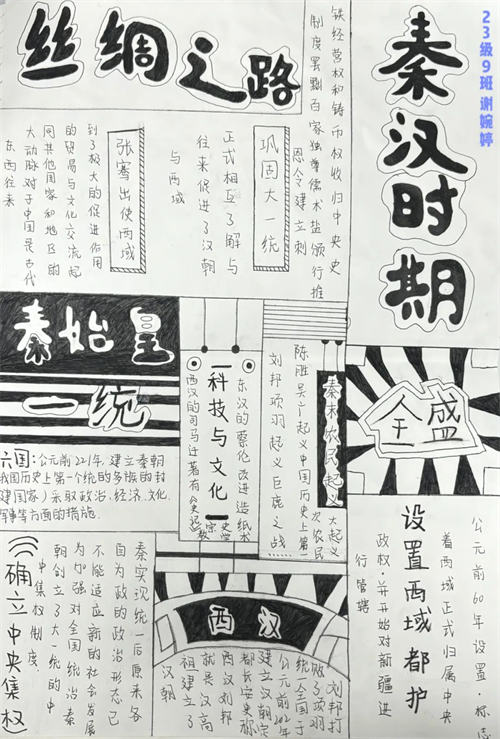 23级9班 谢婉婷
丝绸之路
秦汉时期
铁经营权和铸币权收归中央史
制度罢黜百家独尊儒术盐颁行推
恩令建立刺
巩固大一统
正式相互了解与
往来促进了汉朝
与西域
张骞出使西域
到了极大的促进作用
的贸易与文化交流起
同其他国家和地区的
大动脉对于中国是古代
东西往来
秦始皇
一统
六国:公元前221年,建立秦朝
我国历史上第一个统的多族的封
建国家)采取政治、经济、文化、
军事等方面的措施.
科技与文化
东汉的蔡伦改进造纸术
西汉的司马迁著有《史记》
宗教
史学
秦末农民起义
陈胜吴广起义中国历史上第一
次农民
大起义
刘邦项羽起义巨鹿之战……
全盛
公元前60年设置,标志
着西域正式归属中央
政权,并开始对新疆进
行管辖
设置西域都护
秦实现统一后原来各
自为政的政治形态已
不能适应新的社会发展
为加强对全国统治秦
朝创立了大一统的中
中央集权制度.
确立中央集权
西汉
刘邦打
败了项羽
统一全国于
公元前202年
建立汉朝定
都长安史称
西汉刘邦
就是汉高
祖建立了
汉朝